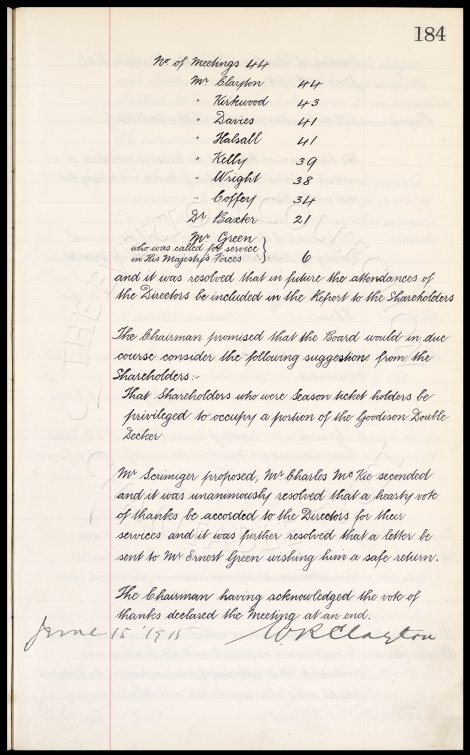 184
No of Meetings 44
Mr Clayton 44
" Kirkwood 43
" Davies 41
" Halsall 41
" Kelly 39
" Wright 38
" Coffey 34
Dr Baxter 21
Mr Green
who was called for service
in His Majesty's Forces } 6
and it was resolved that in future the attendances of
the Directors be included in the Report to the Shareholders
The Chairman promised that the Board would in due
course consider the following suggestion from the
Shareholders:-
That Shareholders who were Season ticket holders be
privileged to occupy a portion of the Goodison Double
Decker
Mr Scrimiger proposed, Mr Charles Mc Kie seconded
and it was unanimously resolved that a hearty vote
of thanks be accorded to the Directors for their
services and it was further resolved that a letter be
sent to Mr Ernest Green wishing him a safe return.
The Chairman having acknowledged the vote of
thanks declared the Meeting at an end.
June 15 WRClayton